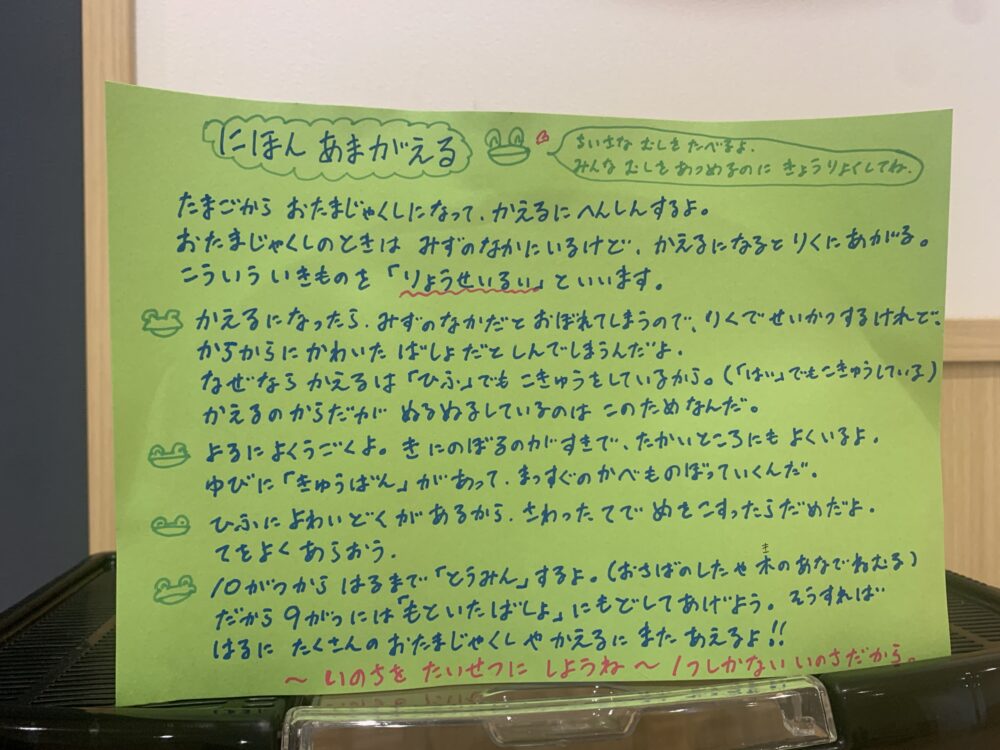 にほん あまがえる
ちいさな むしを たべるよ.
みんな むしを あつめるのに きょうりょくしてね.
たまごから おたまじゃくしになって、かえるに へんしんするよ。
おたまじゃくしのときは みずのなかにいるけど、かえるになると りくにあがる。
こういう いきものを 「りょうせいるい」といいます。
かえるになったら、みずのなかだと おぼれてしまうので、りくでせいかつするけれど、
からからに かわいた ばしょだと しんでしまうんだよ.
なぜなら かえるは「ひふ」でも こきゅうをしているから。(「はい」でもこきゅうしている)
かえるのからだが ぬるぬるしているのは このためなんだ。
よるに よくうごくよ。きにのぼるのがすきで、たかいところにも よくいるよ.
ゆびに「きゅうばん」があって、まっすぐのかべものぼっていくんだ.
ひふに よわいどくがあるから、さわった てで めをこすったらだめだよ.
てをよくあらおう.
10がつから はるまで「とうみん」するよ。(おちばのしたや 木のあなでねむる)
き
だから 9がつには「もといたばしょ」にもどしてあげよう。そうすれば
はるに たくさんの おたまじゃくしや かえるに また あえるよ!!
〜 いのちを たいせつに しようね 〜 1つしかない いのちだから。